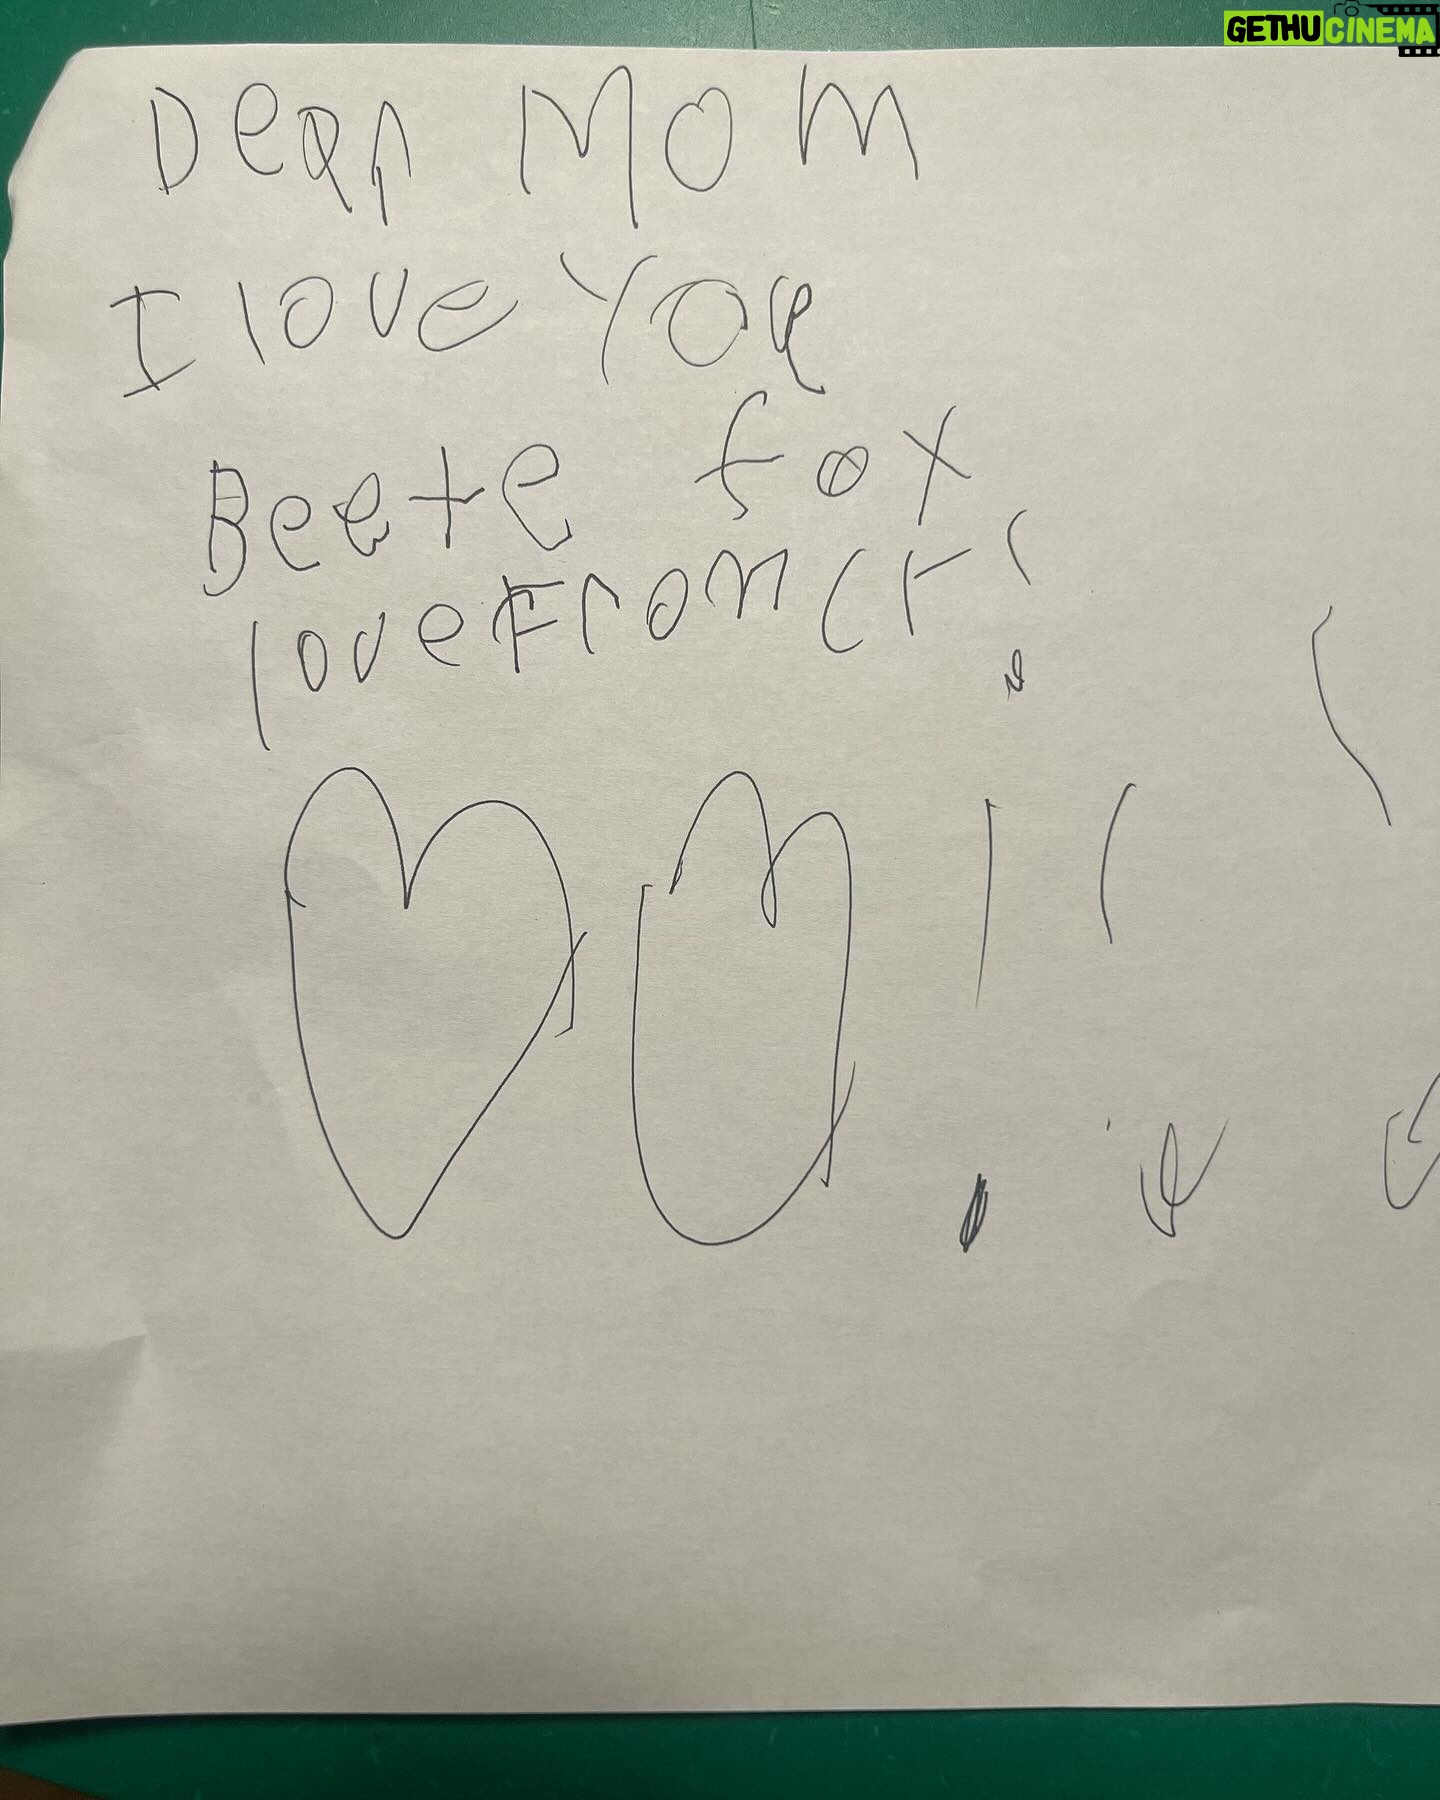 GETHUCINEMA
Dear MOM
I love You
Beete fox
love From Cr!